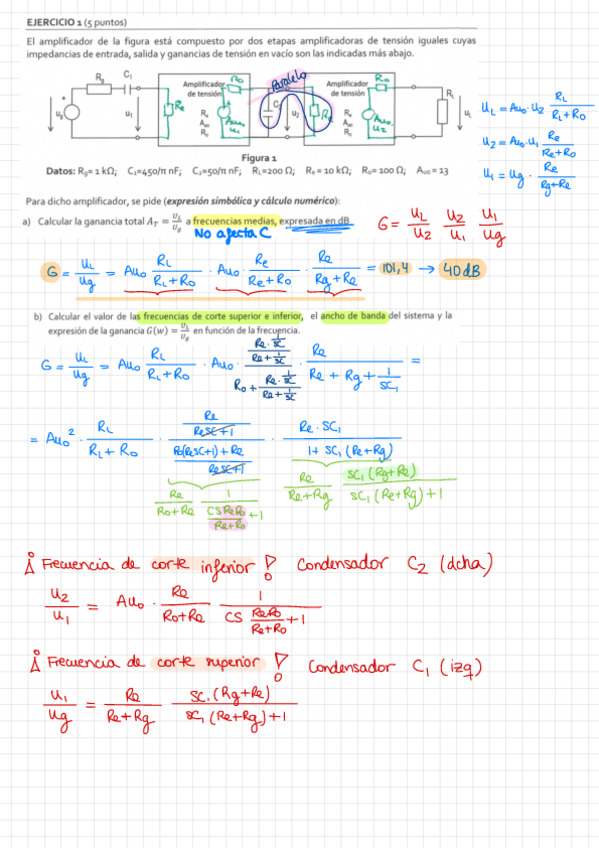 EJERCICIO 1 (5 puntos)
El amplificador de la figura está compuesto por dos etapas amplificadoras de tensión iguales cuyas
impedancias de entrada, salida y ganancias de tensión en vacío son las indicadas más abajo.
Paralelo
Rg C₁ Amplificador de tensión Ro Amplificador de tensión Ro
ug u₁ Re Re Auo Ro Auo u₁ C₂ u₂ Re Re Auo Ro Auo u₂ RL uL
uL = Auo · u₂ RL / (RL + Ro)
u₂ = Auo · u₁ Re / (Re + Ro)
u₁ = ug · Re / (Rg + Re)
Figura 1
Datos: Rg= 1 kΩ; C₁=450/π nF; C₂=50/π nF; RL=200 Ω; Re = 10 kΩ; Ro= 100 Ω; Avo = 13
Para dicho amplificador, se pide (expresión simbólica y cálculo numérico):
a) Calcular la ganancia total AT = UL/Ug a frecuencias medias, expresada en dB
No afecta C
G = uL/u₂ u₂/u₁ u₁/ug
G = uL/ug = Auo RL/(RL + Ro) · Auo · Re/(Re + Ro) · Re/(Rg + Re) = 101,4 → 40 dB
b) Calcular el valor de las frecuencias de corte superior e inferior, el ancho de banda del sistema y la
expresión de la ganancia G(w) = UL/Ug en función de la frecuencia.
G = uL/ug = Auo RL/(RL + Ro) · Auo · (Re · 1/SC / (Re + 1/SC)) / (Ro + Re · 1/SC / (Re + 1/SC)) · Re/(Re + Rg + 1/SC₁) =
= Auo² · RL/(RL + Ro) · (Re/(ReSC+1)) / ((Ro(ReSC+1) + Re)/(ReSC+1)) · Re · SC₁/(1 + SC₁(Re + Rg))
Re/(Ro + Re) 1/(CS ReRo/(Re+Ro) + 1) Re/(Re + Rg) SC₁(Rg + Re)/(SC₁(Re + Rg) + 1)
¡ Frecuencia de corte inferior ! Condensador C₂ (dcha)
u₂/u₁ = Auo · Re/(Ro + Re) 1/(CS ReRo/(Re+Ro) + 1)
¡ Frecuencia de corte superior ! Condensador C₁ (izq)
u₁/ug = Re/(Re + Rg) SC₁(Rg + Re)/(SC₁(Re + Rg) + 1)